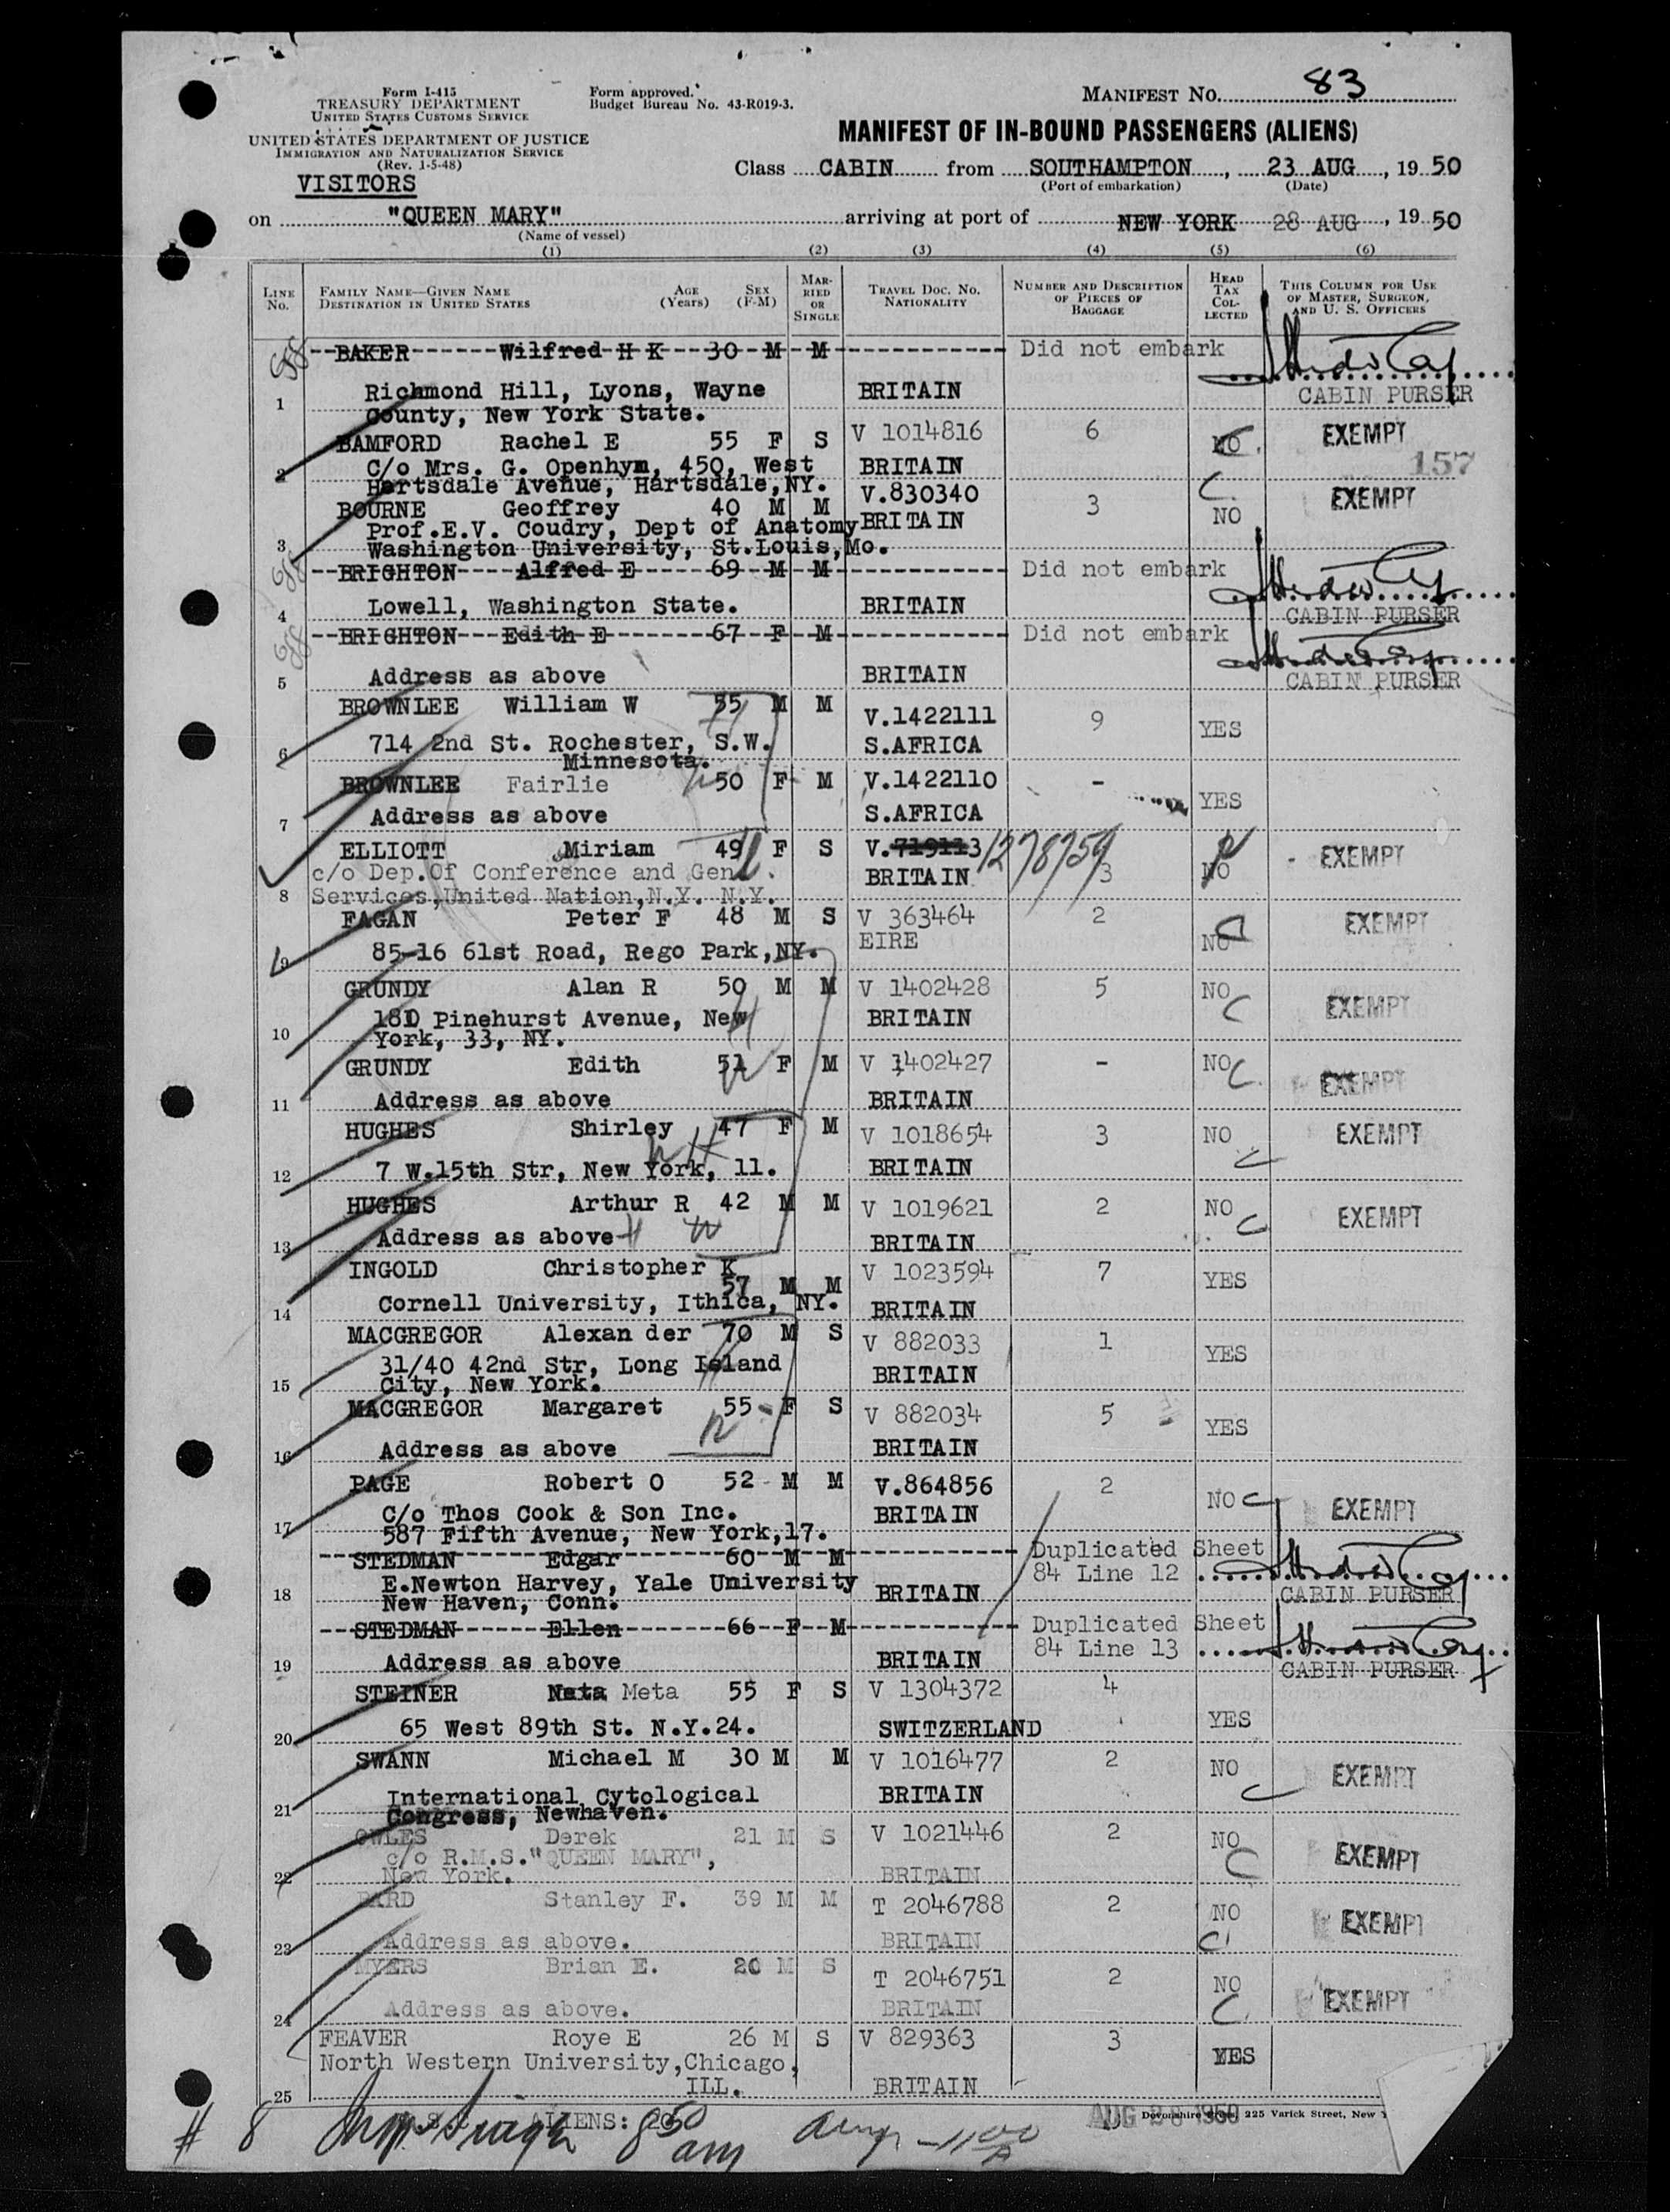 Form I-415
TREASURY DEPARTMENT
UNITED STATES CUSTOMS SERVICE
UNITED STATES DEPARTMENT OF JUSTICE
IMMIGRATION AND NATURALIZATION SERVICE
(Rev. 1-5-48)
VISITORS
Form approved.
Budget Bureau No. 43-R019-3.
MANIFEST No. 83
MANIFEST OF IN-BOUND PASSENGERS (ALIENS)
Class CABIN from SOUTHAMPTON, 23 AUG, 19 50
(Port of embarkation) (Date)
on "QUEEN MARY" arriving at port of NEW YORK 28 AUG, 19 50
(Name of vessel)
(1) (2) (3) (4) (5) (6)
LINE No. FAMILY NAME—GIVEN NAME DESTINATION IN UNITED STATES AGE (Years) SEX (F-M) MARRIED OR SINGLE TRAVEL DOC. NO. NATIONALITY NUMBER AND DESCRIPTION OF PIECES OF BAGGAGE HEAD TAX COLLECTED THIS COLUMN FOR USE OF MASTER, SURGEON, AND U. S. OFFICERS
BAKER Wilfred H K 30 M M Did not embark
Richmond Hill, Lyons, Wayne BRITAIN CABIN PURSER
1 County, New York State.
BAMFORD Rachel E 55 F S V 1014816 6 NO. EXEMPT
C/o Mrs. G. Openhym, 450, West BRITAIN 157
2 Hartsdale Avenue, Hartsdale,NY.
BOURNE Geoffrey 40 M M V.830340 3 NO EXEMPT
Prof.E.V. Coudry, Dept of Anatomy BRITAIN
3 Washington University, St.Louis,Mo.
BRIGHTON Alfred E 69 M M Did not embark
4 Lowell, Washington State. BRITAIN CABIN PURSER
BRIGHTON Edith E 67 F M Did not embark
5 Address as above BRITAIN CABIN PURSER
BROWNLEE William W 55 M M V.1422111 9 YES
6 714 2nd St. Rochester, S.W. S.AFRICA
Minnesota.
BROWNLEE Fairlie 50 F M V.1422110 - YES
7 Address as above S.AFRICA
ELLIOTT Miriam 49 F S V.719113 1278759 NO EXEMPT
c/o Dep.Of Conference and Genl. BRITAIN 3
8 Services,United Nation,N.Y. N.Y.
FAGAN Peter F 48 M S V 363464 2 NO EXEMPT
9 85-16 61st Road, Rego Park,NY. EIRE
GRUNDY Alan R 50 M M V 1402428 5 NO EXEMPT
181 Pinehurst Avenue, New BRITAIN
10 York, 33, NY.
GRUNDY Edith 51 F M V 1402427 - NO EXEMPT
11 Address as above BRITAIN
HUGHES Shirley 47 F M V 1018654 3 NO EXEMPT
12 7 W.15th Str, New York, 11. BRITAIN
HUGHES Arthur R 42 M M V 1019621 2 NO EXEMPT
13 Address as above BRITAIN
INGOLD Christopher K V 1023594 7 YES
57 M M
14 Cornell University, Ithica, NY. BRITAIN
MACGREGOR Alexan der 70 M S V 882033 1 YES
31/40 42nd Str, Long Island BRITAIN
15 City, New York.
MACGREGOR Margaret 55 F S V 882034 5 YES
16 Address as above BRITAIN
PAGE Robert O 52 M M V.864856 2 NO EXEMPT
C/o Thos Cook & Son Inc. BRITAIN
17 587 Fifth Avenue, New York,17.
STEDMAN Edgar 60 M M Duplicated Sheet
84 Line 12
E.Newton Harvey, Yale University BRITAIN CABIN PURSER
18 New Haven, Conn.
STEDMAN Ellen 66 F M Duplicated Sheet
84 Line 13
19 Address as above BRITAIN CABIN PURSER
STEINER Neta Meta 55 F S V 1304372 4 YES
20 65 West 89th St. N.Y.24. SWITZERLAND
SWANN Michael M 30 M M V 1016477 2 NO EXEMPT
International Cytological BRITAIN
21 Congress, Newhaven.
OWLES Derek 21 M S V 1021446 2 NO EXEMPT
c/o R.M.S."QUEEN MARY",
22 New York. BRITAIN
BARD Stanley F. 39 M M T 2046788 2 NO EXEMPT
23 Address as above. BRITAIN
MYERS Brian E. 20 M S T 2046751 2 NO EXEMPT
24 Address as above. BRITAIN
FEAVER Roye E 26 M S V 829363 3 YES
North Western University,Chicago,
25 ILL. BRITAIN
# 8 ALIENS: 20 8 50 am 11 00 A
AUG 28 1950
225 Varick Street, New Y